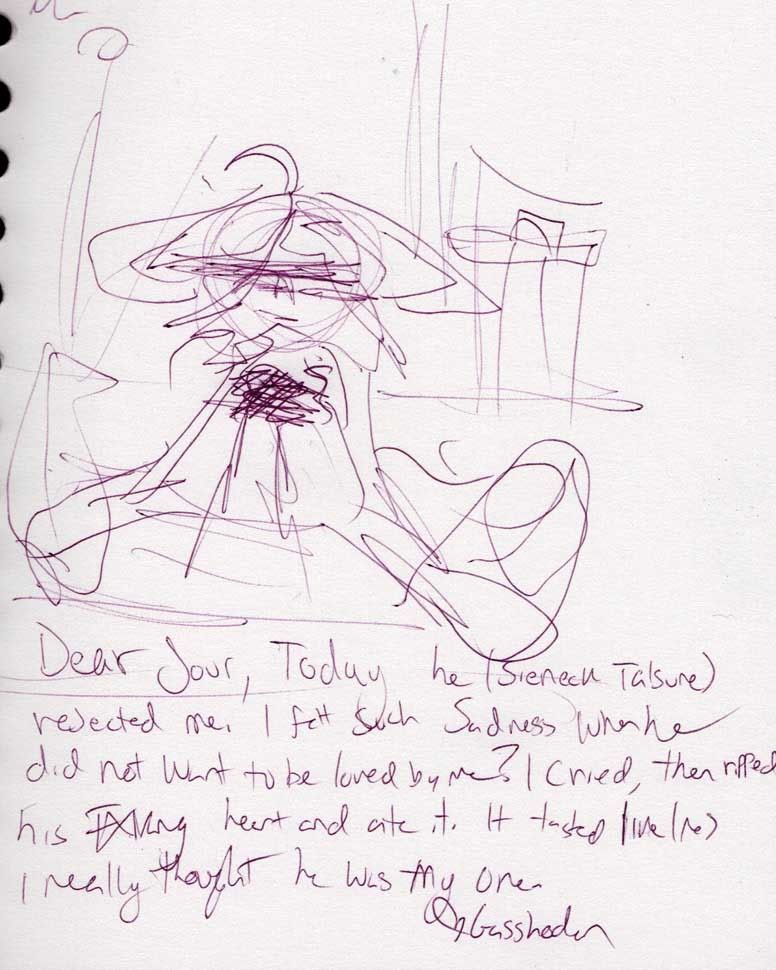 Dear Jour, Today he (Sieneck Talsure)
rejected me. I felt such Sadness when he
did not want to be loved by me? I cried, then ripped
his heart and ate it. It tasted like lies
I really thought he was my one.